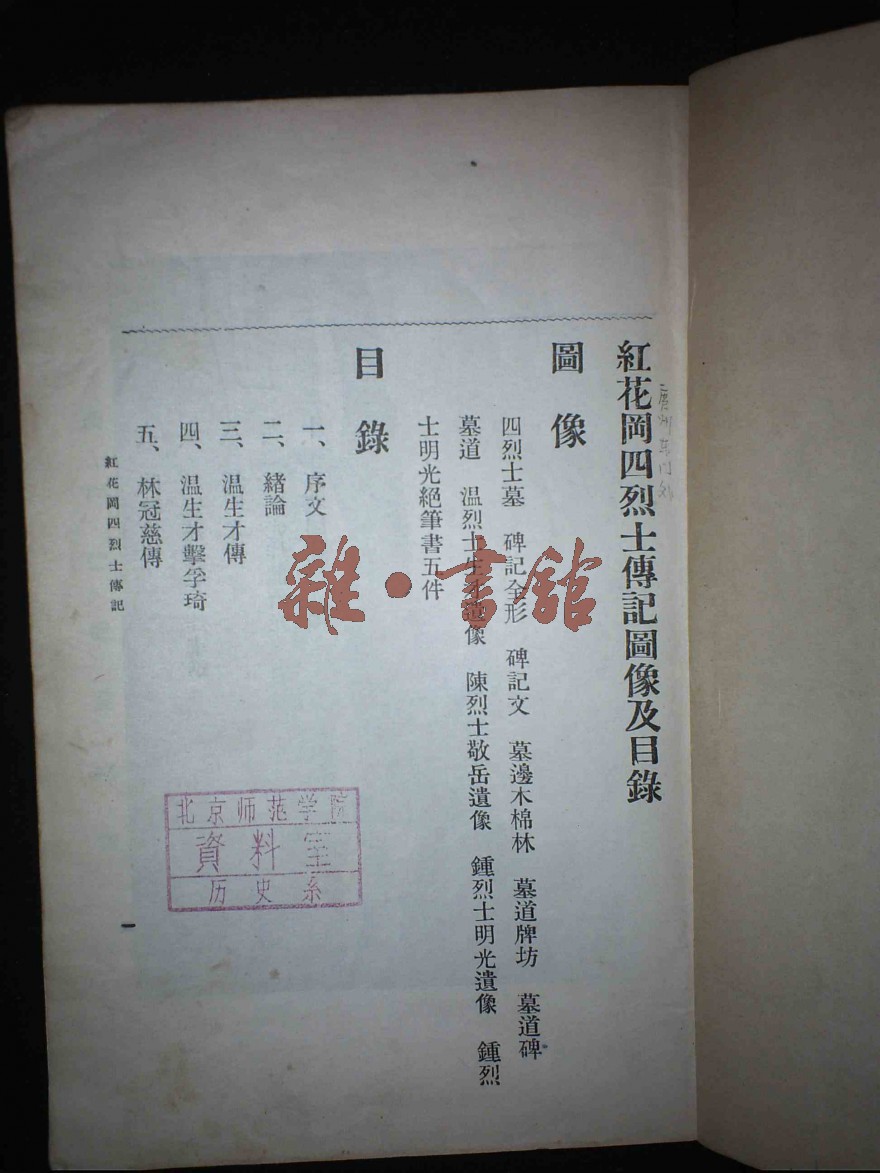 紅花岡四烈士傳記圖像及目錄
圖像
四烈士墓 碑記全形 碑記文 墓邊木棉林 墓道牌坊 墓道碑
墓道 温烈士生才遺像 陳烈士敬岳遺像 鍾烈士明光遺像 鍾烈
士明光絕筆書五件
目錄
一、序文
二、緒論
三、温生才傳
四、温生才擊孚琦
五、林冠慈傳
紅花岡四烈士傳記
一
雜·書館
北京师范学院
資料室
历史系